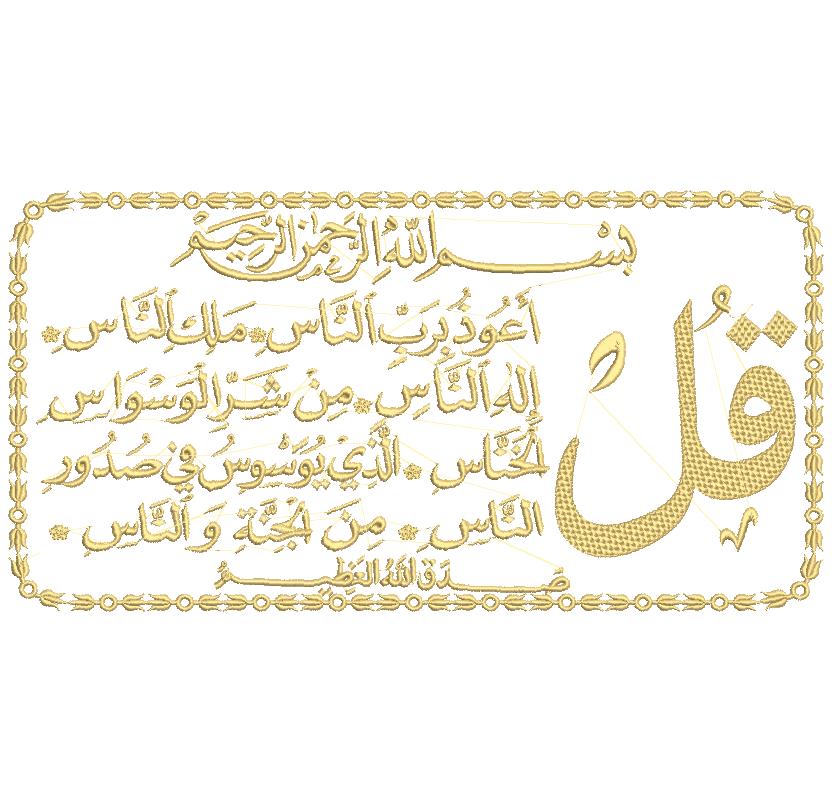 بِسْمِ اللهِ الرَّحْمٰنِ الرَّحِيْمِ
قُلْ
أَعُوذُ بِرَبِّ ٱلنَّاسِ * مَلِكِ ٱلنَّاسِ *
إِلٰهِ ٱلنَّاسِ * مِنْ شَرِّ الْوَسْوَاسِ
الْخَنَّاسِ * الَّذِيْ يُوَسْوِسُ فِي صُدُورِ
النَّاسِ * مِنَ الْجِنَّةِ وَٱلنَّاسِ *
صَدَقَ اللهُ العَظِيمُ